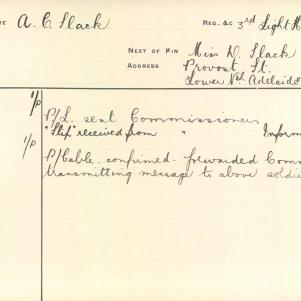 ME A. C. Slack REG. &C 3rd Light H
NEXT OF KIN Miss D. Slack
ADDRESS Provost St.
Lower Nth Adelaide
1/p P/L. sent Commissioner
"Slip" received from " Inform
1/p P/Cable. confirmed. forwarded Comm
transmitting message to above soldie